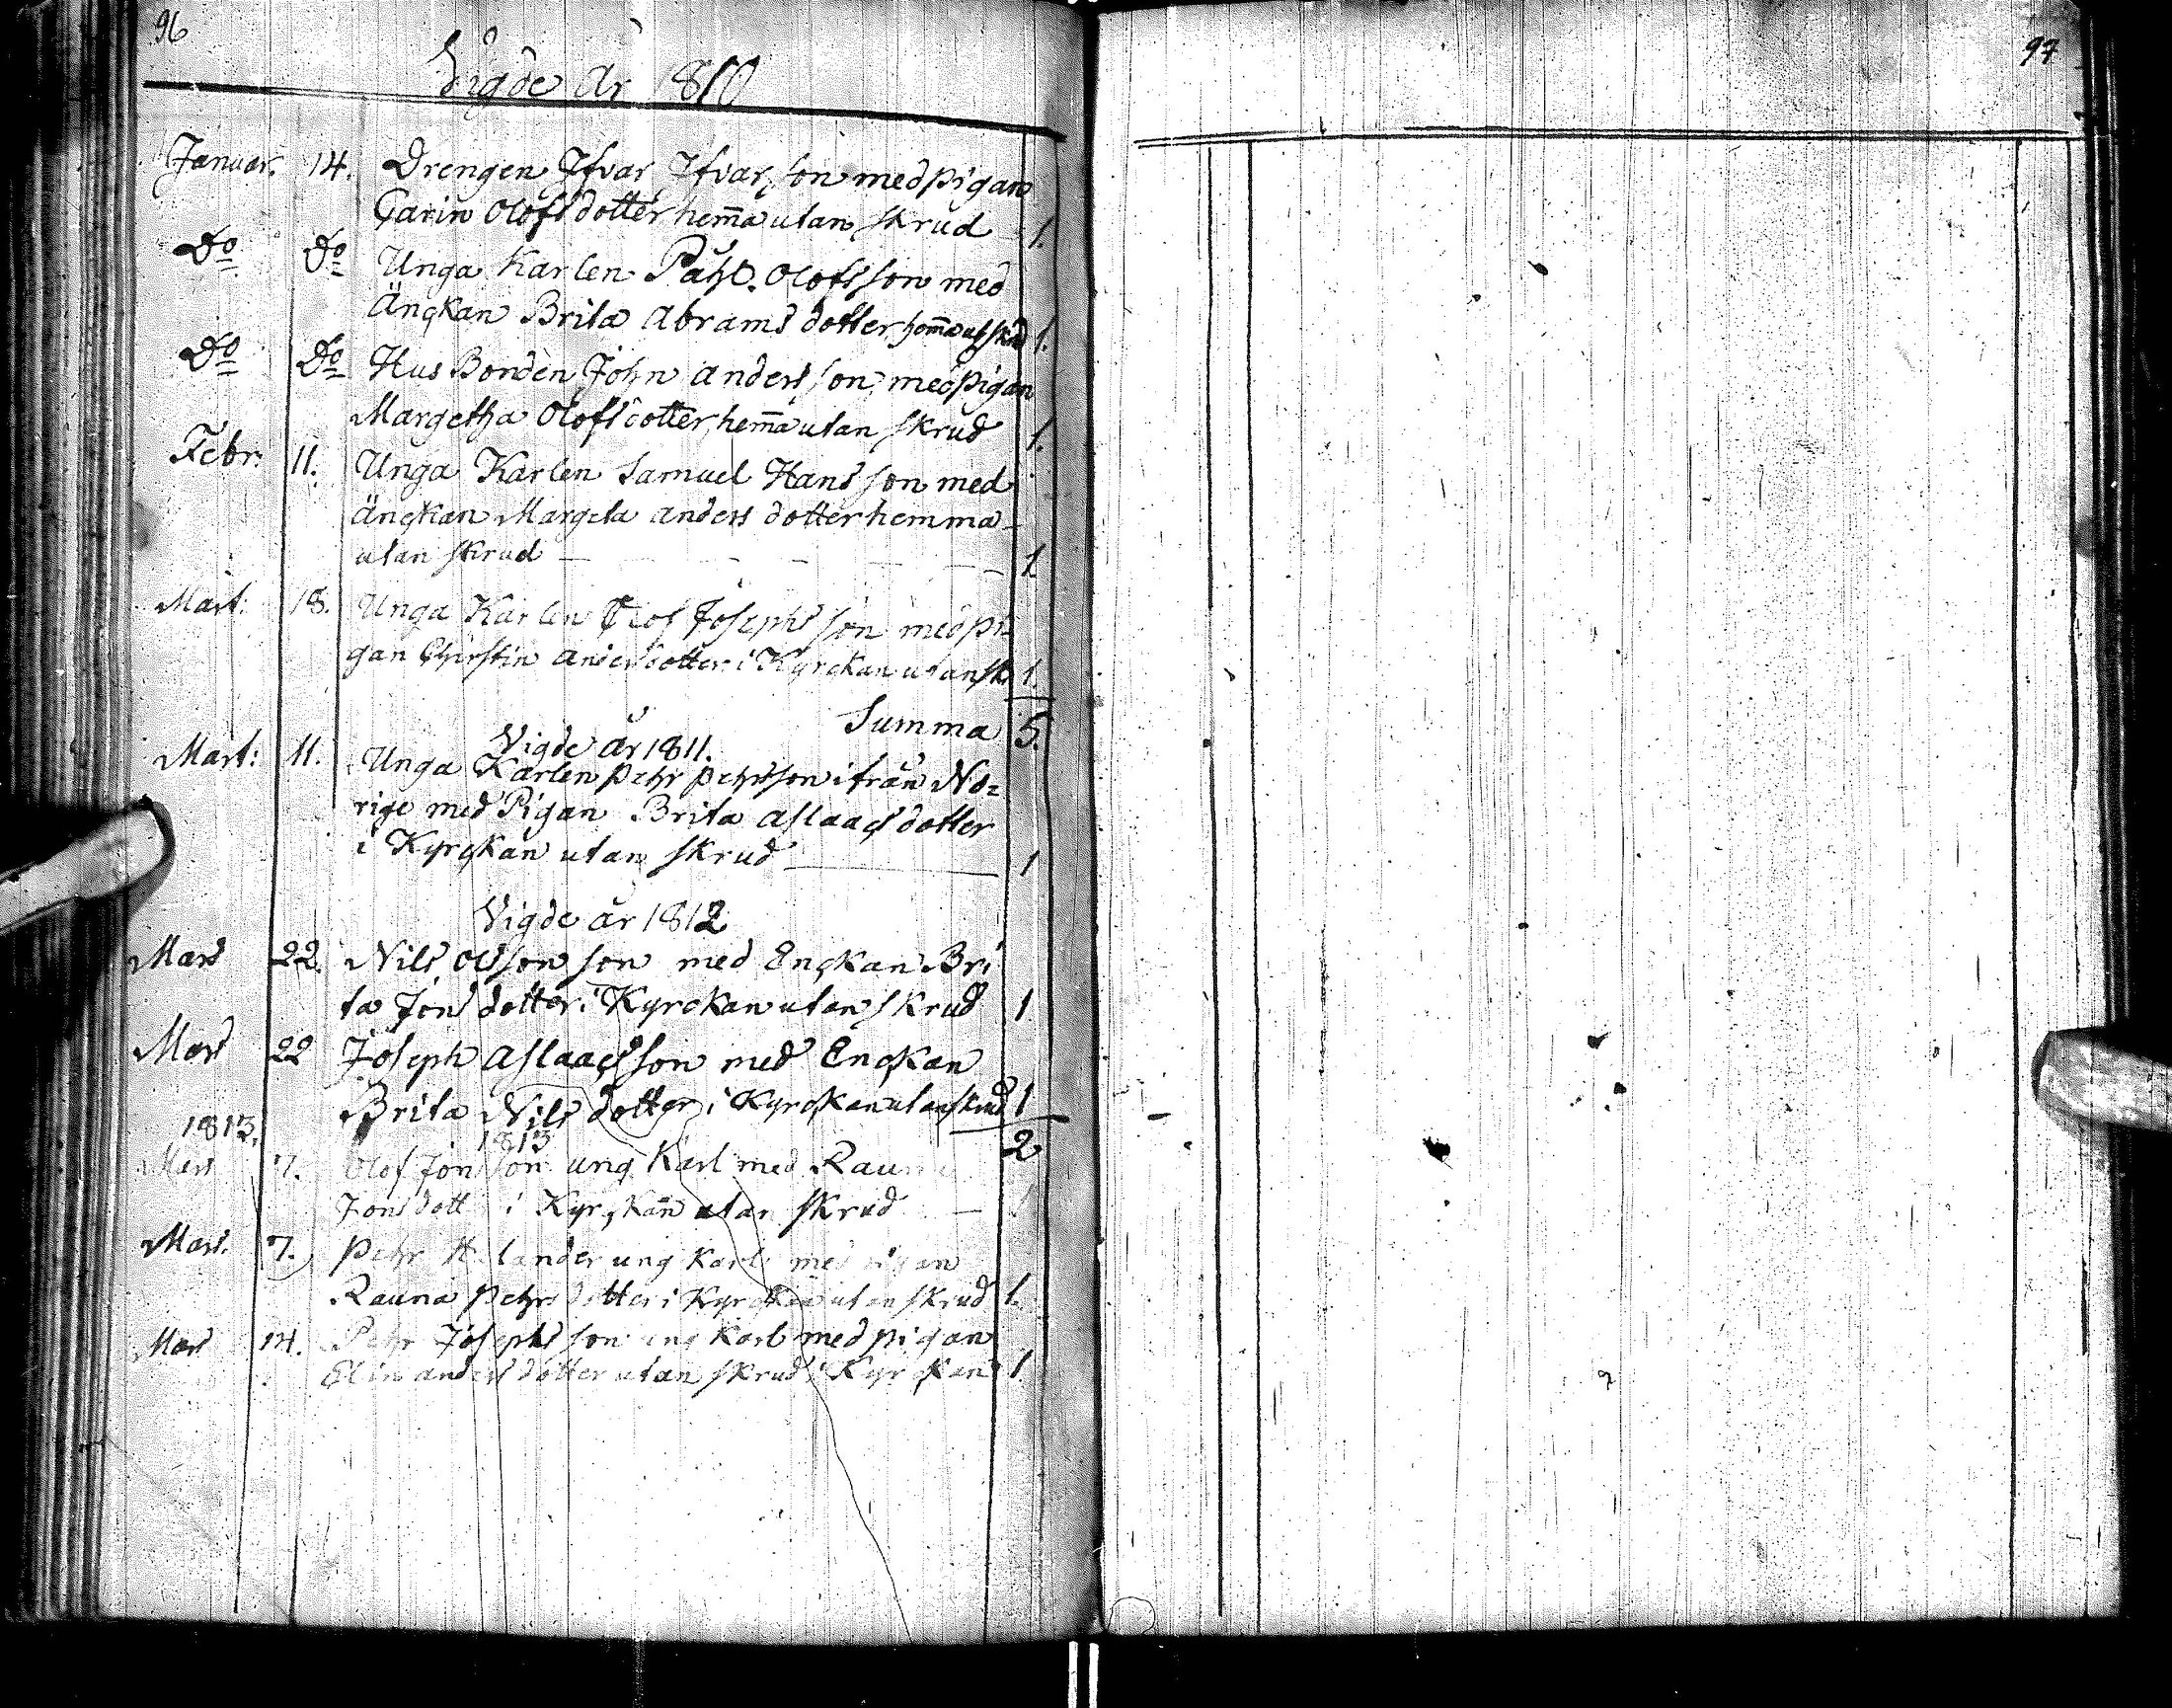 96
Vigde År 1810
Januar. 14. Drengen Ifvar Ifvarsson med pigan
Carin Olofsdotter hem̄a utan skrud 1.
Do Do Unga Karlen Påhl Olofsson med
Ängkan Brita Abrams dotter hem̄a ut skrd 1.
Do Do Hus Bonden John Anders son med pigan
Margetha Olofsdotter hem̄a utan skrud 1.
Febr. 11. Unga Karlen Samuel Hans son med
änckan Margeta Anders dotter hemma
utan skrud 1
Mart: 18. Unga Karlen Olof Josephs son med pi-
gan Christin Anders dotter i Kyrckan utan sk 1.
Summa 5.
Vigde år 1811.
Mart: 11. Unga Karlen Pehr Pehrsson ifrån No=
rige med Pigan Brita Aslaacs dotter
i Kyrckan utan skrud 1
Vigde år 1812
Mars 22. Nils Olsson son med Enckan Bri
ta Jons dotter i Kyrckan utan skrud 1
Mars 22 Joseph Aslaacsson med Enckan
Brita Nils dotter i Kyrckan utan skrud 1
1813. 1813 2
Mars 7. Olof Jonsson ung Karl med
Jonsdott i Kyrckan utan skrud
Mars. 7. Pehr ung Karl med pigan
Rauna Pehrs dotter i Kyrckan utan skrud 1.
Mars 14. Pehr Josephs son ung Karl med pigan
Elin Anders dotter utan skrud i Kyrckan 1
97